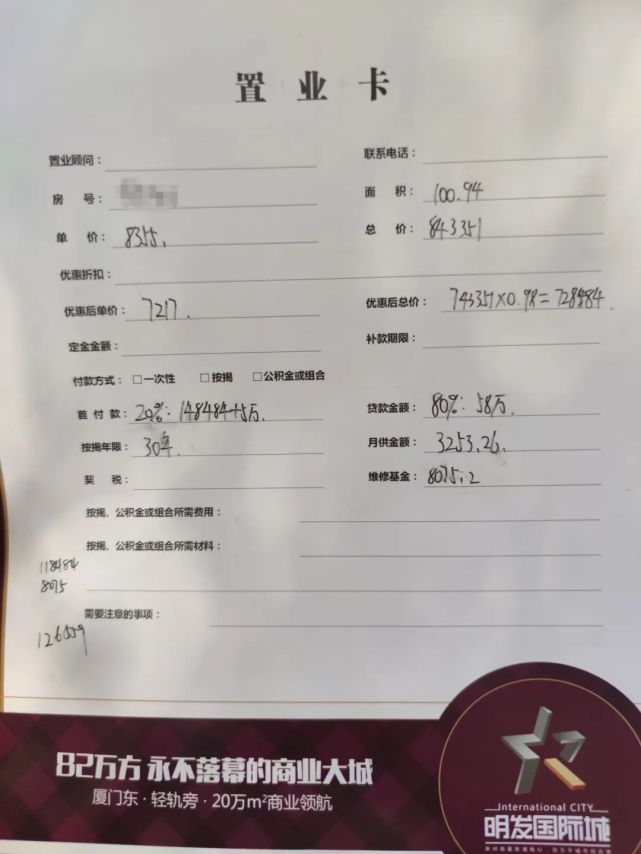 置业卡
置业顾问： 联系电话：
房 号： 面 积：100.94
单 价：8355. 总 价：843351
优惠折扣：
优惠后单价：7217. 优惠后总价：743351×0.98=728484.
定金金额： 补款期限：
付款方式：□一次性 □按揭 □公积金或组合
首 付 款：20%：148484+5万. 贷款金额：80%：58万.
按揭年限：30年. 月供金额：3253.26.
契 税： 维修基金：8075.2
按揭、公积金或组合所需费用：
按揭、公积金或组合所需材料：
118484
8075
需要注意的事项：
126559
82万方 永不落幕的商业大城
厦门东·轻轨旁·20万m²商业领航
International CITY
明发国际城